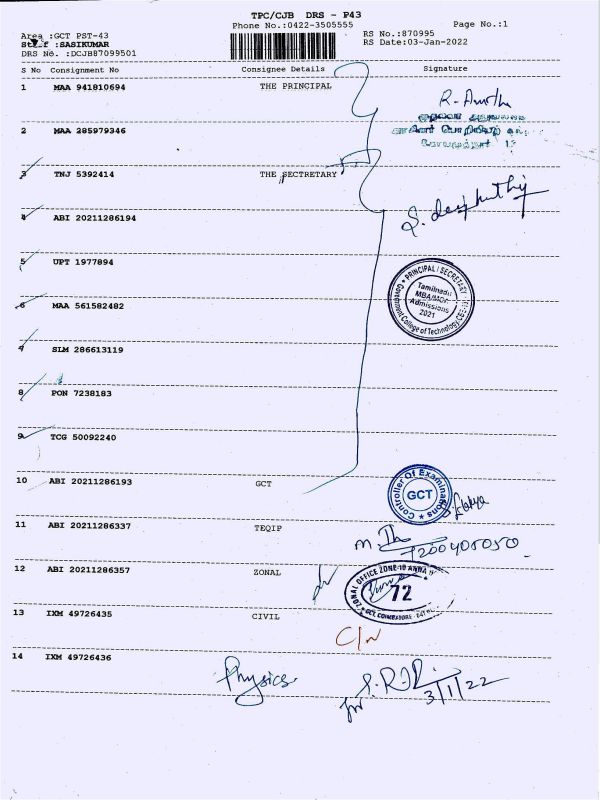 TPC/CJB DRS - P43
Phone No.:0422-3505555 Page No.:1
Area :GCT PST-43 RS No.:870995
Staff :SASIKUMAR RS Date:03-Jan-2022
DRS No. :DCJB87099501
S No Consignment No Consignee Details Signature
1 MAA 941810694 THE PRINCIPAL
2 MAA 285979346
3 TNJ 5392414 THE SECTRETARY
S. deephuthij
4 ABI 20211286194
5 UPT 1977894
PRINCIPAL / SECRETARY
Tamilnadu
MBA/MCA
Admissions
2021
Government College of Technology
6 MAA 561582482
4 SLM 286613119
8 PON 7238183
9 TCG 50092240
10 ABI 20211286193 GCT
Controller Of Examinations
GCT
11 ABI 20211286337 TEQIP
7200405050
12 ABI 20211286357 ZONAL
ZONAL OFFICE ZONE-10 ANNA
72
GCT, COIMBATORE
13 IXM 49726435 CIVIL
14 IXM 49726436 Physics
3/1/22